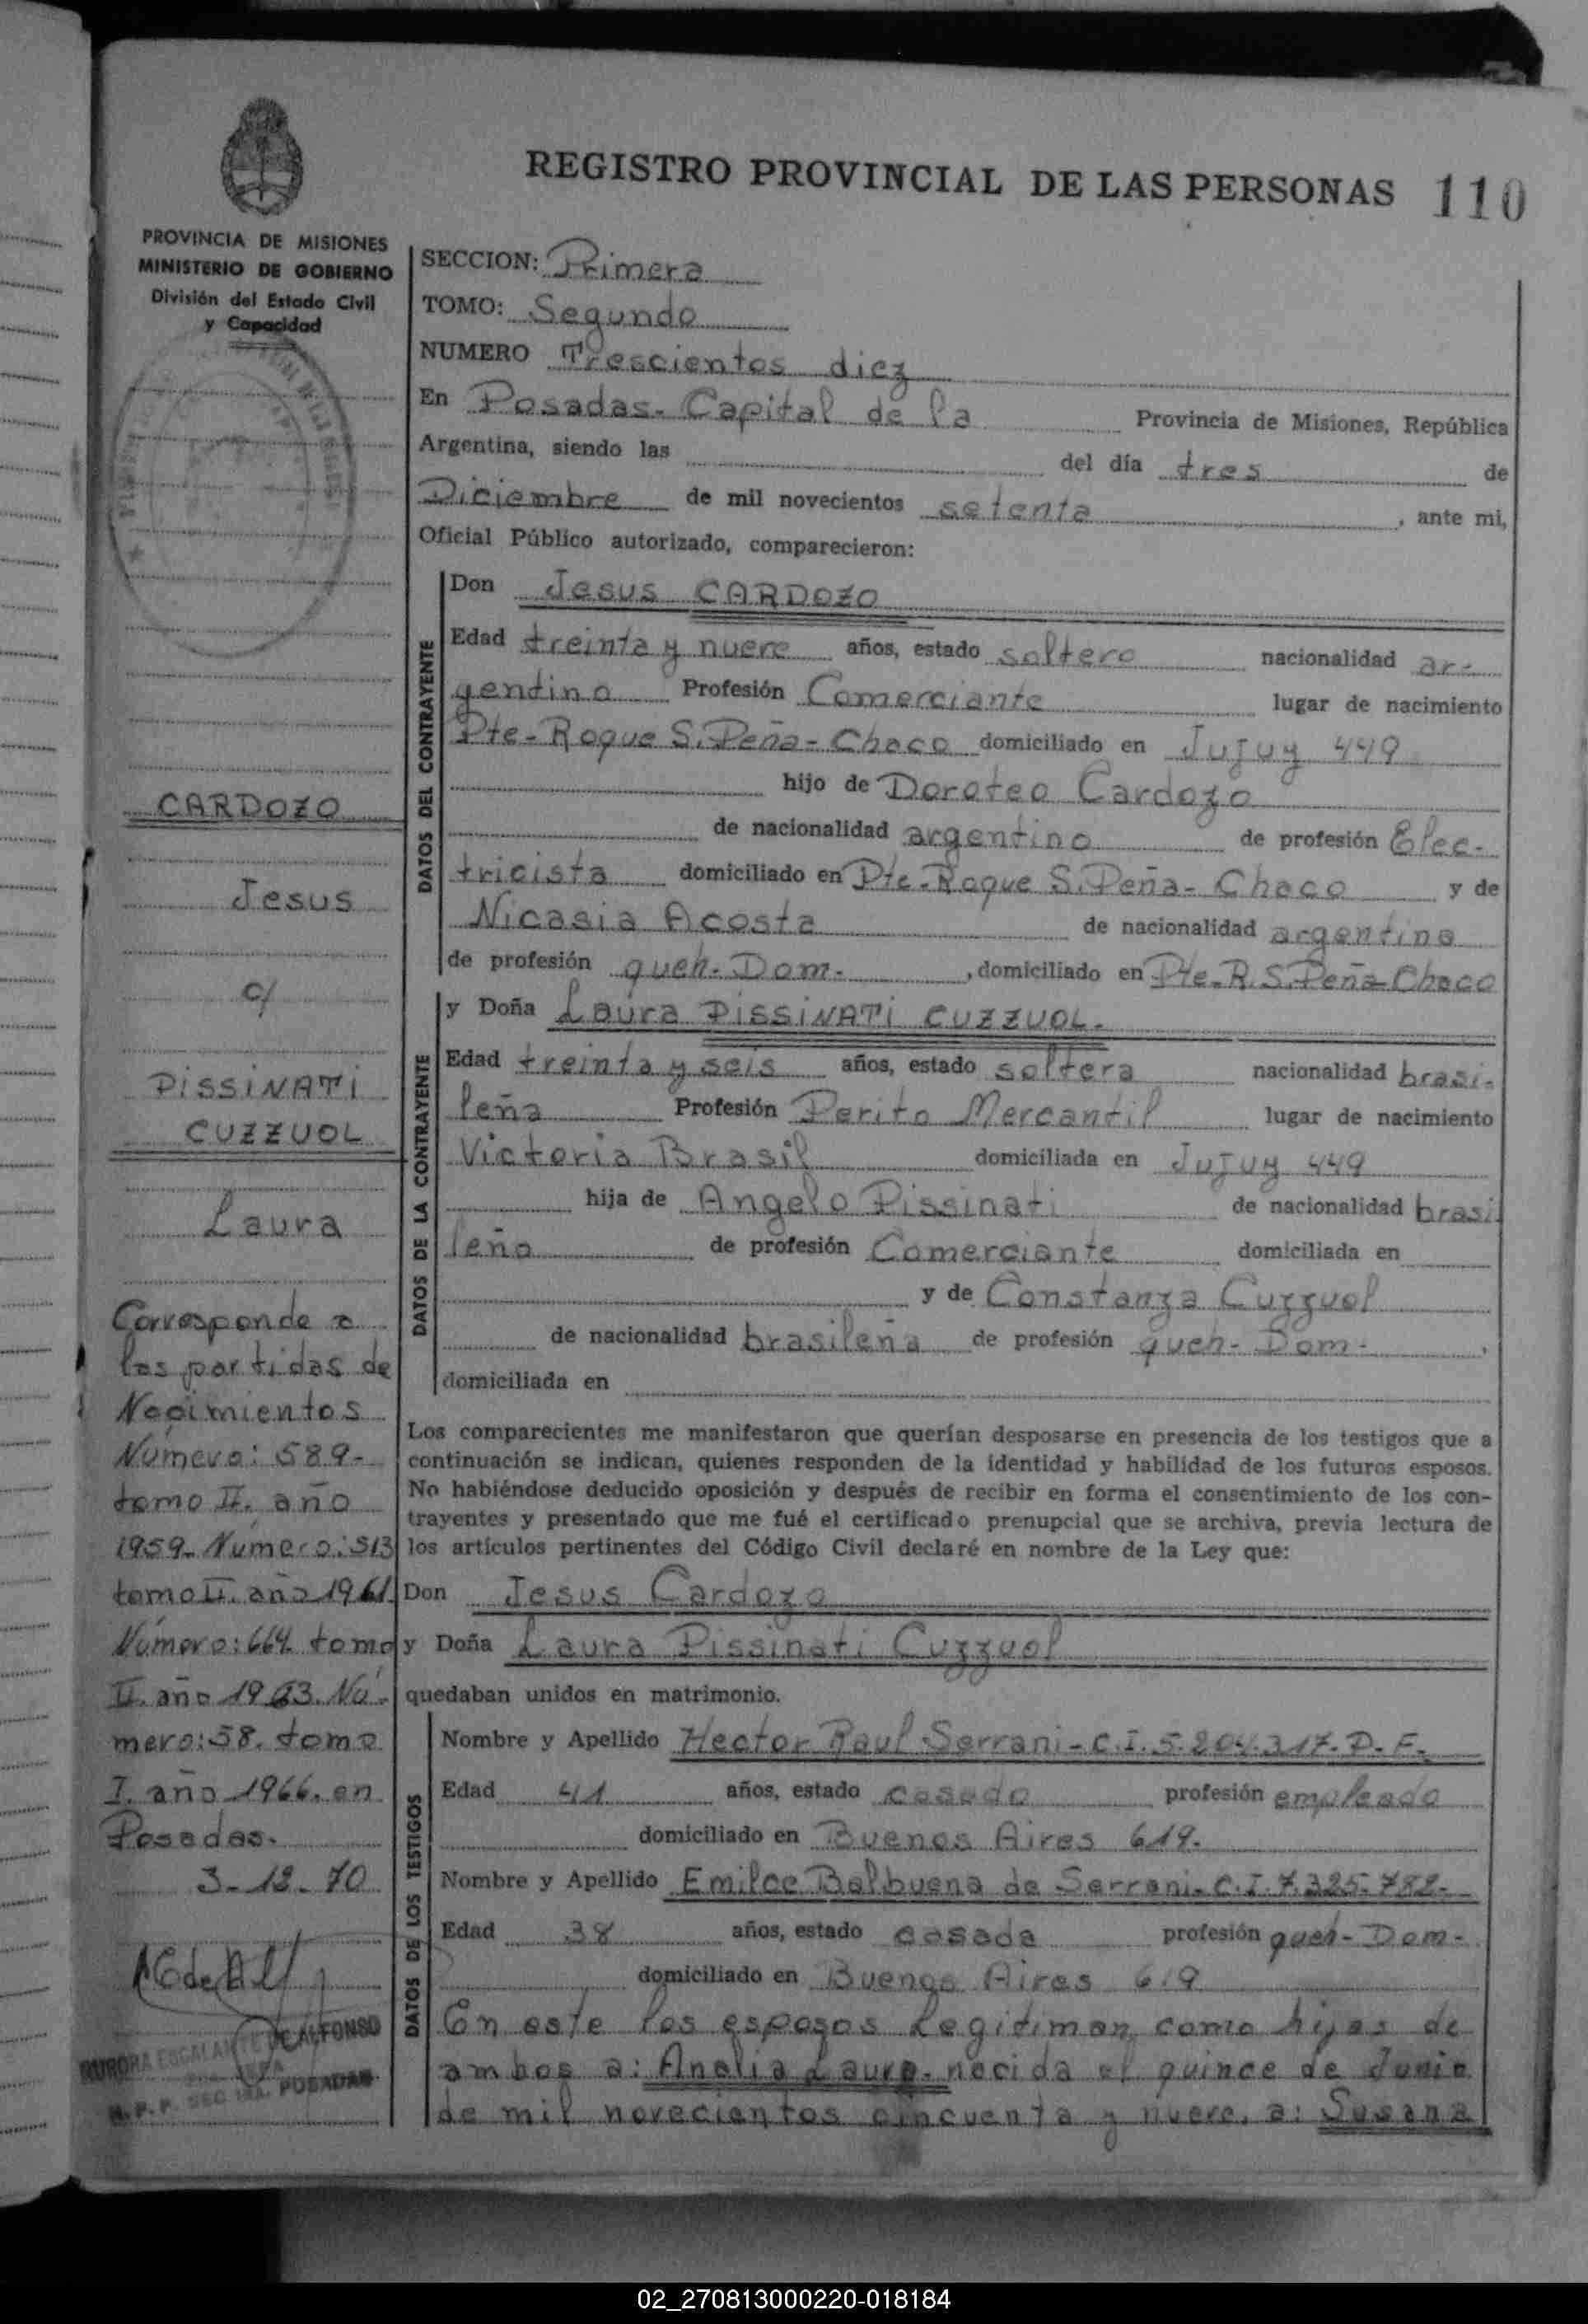 REGISTRO PROVINCIAL DE LAS PERSONAS 110
PROVINCIA DE MISIONES
MINISTERIO DE GOBIERNO
División del Estado Civil
y Capacidad
CARDOZO
Jesus
c/
PISSINATI
CUZZUOL
Laura
Corresponde a
las partidas de
Nacimientos
Número: 589-
tomo II. año
1959. Número: 513
tomo II. año 1961.
Número: 664 tomo
II. año 1963. Nú-
mero: 58. tomo
I. año 1966. en
Posadas.
3-12-70
DE ALFONSO
AURORA ESCALANTE
POSADAS
SECCION: Primera
TOMO: Segundo
NUMERO Trescientos diez
En Posadas- Capital de la Provincia de Misiones, República
Argentina, siendo las del día tres de
Diciembre de mil novecientos setenta , ante mi,
Oficial Público autorizado, comparecieron:
DATOS DEL CONTRAYENTE
Don Jesus CARDOZO
Edad treinta y nueve años, estado soltero nacionalidad ar-
gentino Profesión Comerciante lugar de nacimiento
Pte-Roque S. Peña- Chaco domiciliado en Jujuy 449
hijo de Doroteo Cardozo
de nacionalidad argentino de profesión Elec-
tricista domiciliado en Pte-Roque S. Peña- Chaco y de
Nicasia Acosta de nacionalidad argentina
de profesión queh-Dom- , domiciliado en Pte-R. S. Peña-Chaco
DATOS DE LA CONTRAYENTE
y Doña Laura PISSINATI CUZZUOL-
Edad treinta y seis años, estado soltera nacionalidad brasi-
leña Profesión Perito Mercantil lugar de nacimiento
Victoria Brasil domiciliada en Jujuy 449
hija de Angelo Pissinati de nacionalidad brasi
leño de profesión Comerciante domiciliada en
y de Constanza Cuzzuol
de nacionalidad brasileña de profesión queh-Dom-
domiciliada en
Los comparecientes me manifestaron que querían desposarse en presencia de los testigos que a
continuación se indican, quienes responden de la identidad y habilidad de los futuros esposos.
No habiéndose deducido oposición y después de recibir en forma el consentimiento de los con-
trayentes y presentado que me fué el certificado prenupcial que se archiva, previa lectura de
los artículos pertinentes del Código Civil declaré en nombre de la Ley que:
Don Jesus Cardozo
y Doña Laura Pissinati Cuzzuol
quedaban unidos en matrimonio.
DATOS DE LOS TESTIGOS
Nombre y Apellido Hector Raul Serrani- C.I. 5.204.317. P. F.
Edad 41 años, estado casado profesión empleado
domiciliado en Buenos Aires 619.
Nombre y Apellido Emilce Balbuena de Serrani- C.I. 7.325.782-
Edad 38 años, estado casada profesión queh-Dom-
domiciliado en Buenos Aires 619
En este los esposos Legitiman como hijas de
ambos a: Analia Laura- nacida el quince de Junio
de mil novecientos cincuenta y nueve, a: Susana
02_270813000220-018184